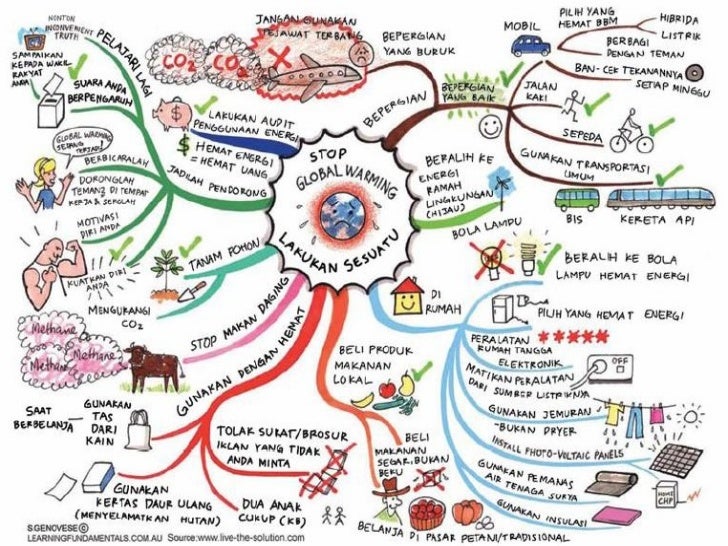 STOP
GLOBAL WARMING
LAKUKAN SESUATU
NONTON
INCONVENIENT
TRUTH
PELAJARI LAGI
SAMPAIKAN
KEPADA WAKIL
RAKYAT
ANDA
SUARA ANDA
BERPENGARUH
GLOBAL WARMING
SEDANG
TERJADI!
BERBICARALAH
DORONGLAH
TEMAN2 DI TEMPAT
KERJA & SEKOLAH
MOTIVASI
DIRI ANDA
KUATKAN DIRI
ANDA
JADILAH PENDORONG
$
LAKUKAN AUDIT
PENGGUNAAN ENERGI
HEMAT ENERGI
= HEMAT UANG
CO2
CO2
JANGAN GUNAKAN
PESAWAT TERBANG
BEPERGIAN
YANG BURUK
BEPERGIAN
BEPERGIAN
YANG BAIK
MOBIL
PILIH YANG
HEMAT BBM
HIBRIDA
LISTRIK
BERBAGI
DENGAN TEMAN
BAN-CEK TEKANANNYA
SETIAP MINGGU
JALAN
KAKI
SEPEDA
GUNAKAN TRANSPORTASI
UMUM
BIS
KERETA API
BERALIH KE
ENERGI
RAMAH
LINGKUNGAN
(HIJAU)
BOLA LAMPU
BERALIH KE BOLA
LAMPU HEMAT ENERGI
DI
RUMAH
PILIH YANG HEMAT ENERGI
PERALATAN
RUMAH TANGGA
ELEKTRONIK
OFF
MATIKAN PERALATAN
DARI SUMBER LISTRIKNYA
GUNAKAN JEMURAN
-BUKAN DRYER
INSTALL PHOTO-VOLTAIC PANELS
GUNAKAN PEMANAS
AIR TENAGA SURYA
HOME
CHP
GUNAKAN INSULASI
TANAM POHON
MENGURANGI
CO2
STOP MAKAN DAGING
Methane
Methane
Methane
GUNAKAN DENGAN HEMAT
SAAT
BERBELANJA
GUNAKAN
TAS
DARI
KAIN
TOLAK SURAT/BROSUR
IKLAN YANG TIDAK
ANDA MINTA
GUNAKAN
KERTAS DAUR ULANG
(MENYELAMATKAN HUTAN)
DUA ANAK
CUKUP (KB)
BELI PRODUK
MAKANAN
LOKAL
BELI
MAKANAN
SEGAR, BUKAN
BEKU
BELANJA DI PASAR PETANI/TRADISIONAL
S.GENOVESE ©
LEARNINGFUNDAMENTALS.COM.AU Source:www.live-the-solution.com